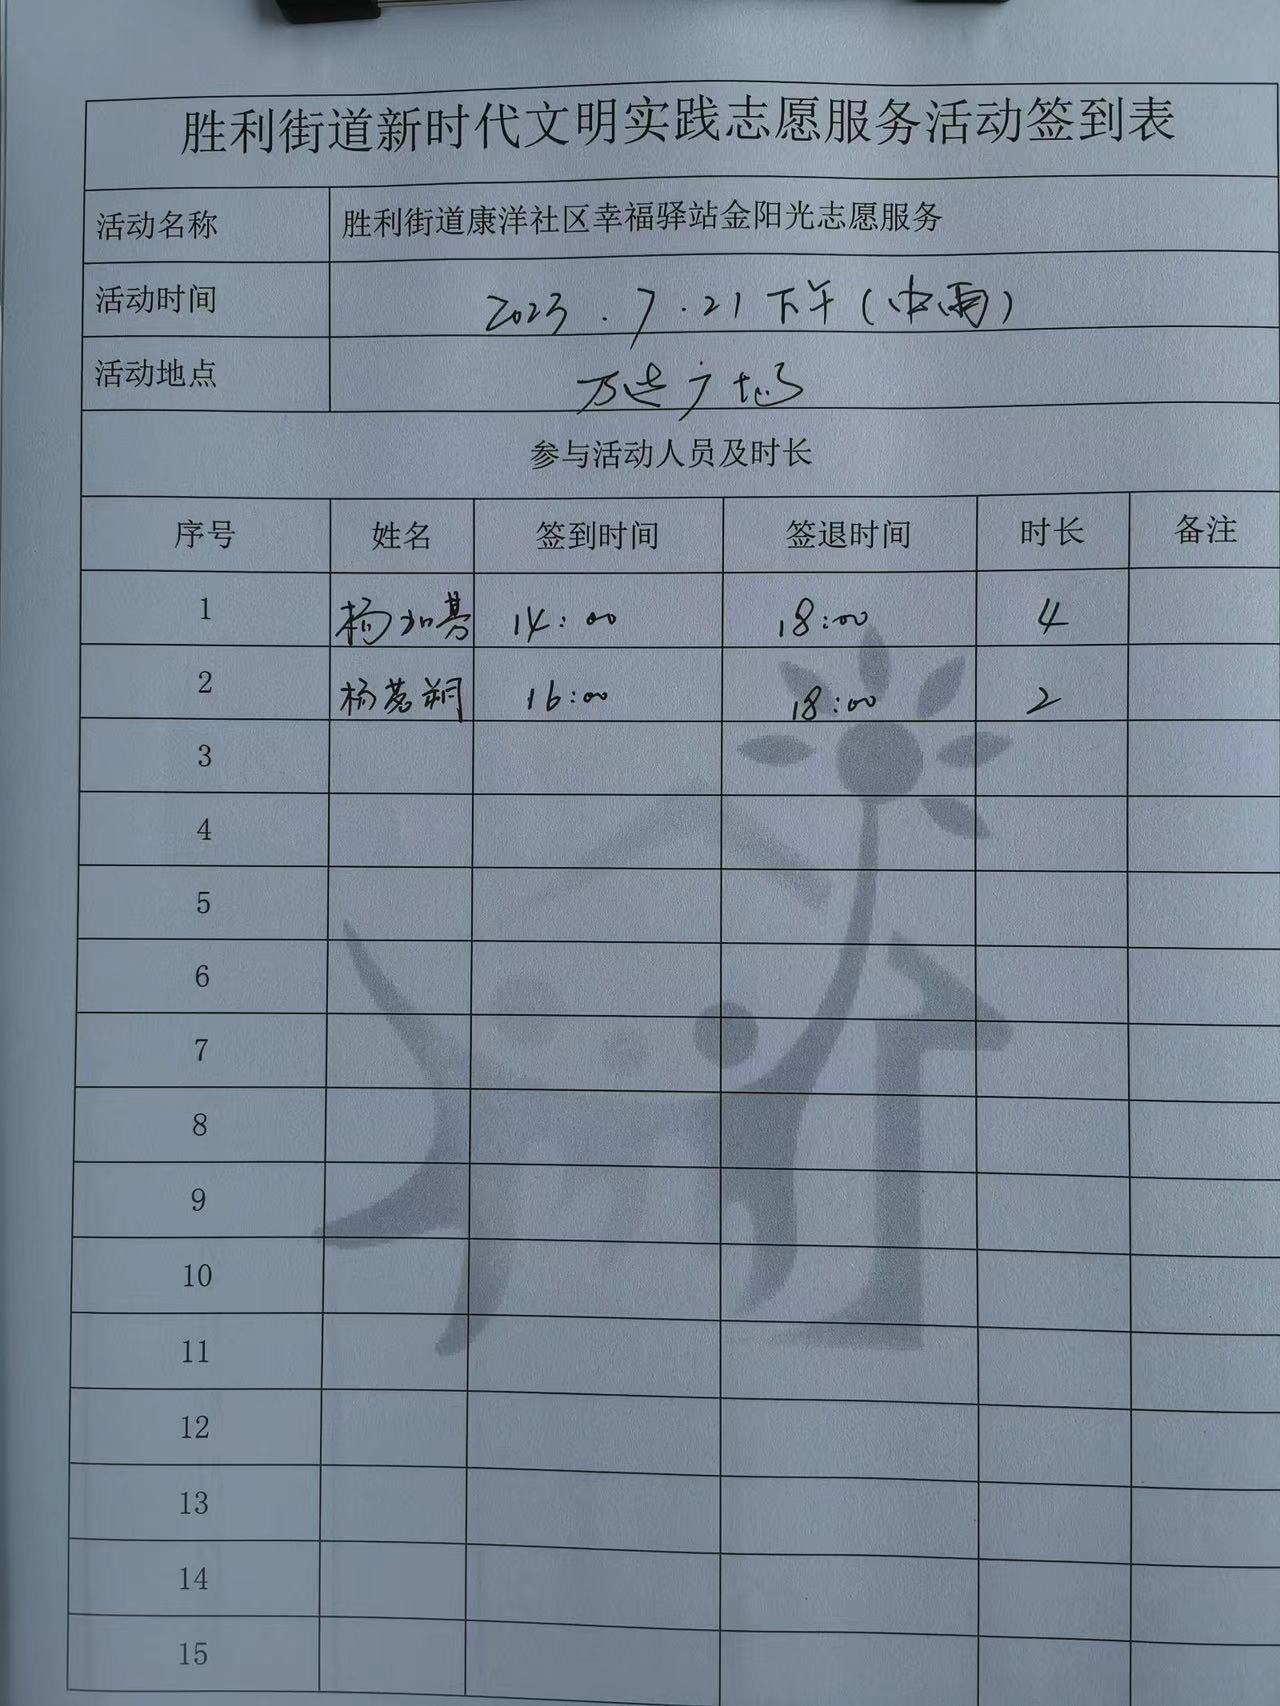 胜利街道新时代文明实践志愿服务活动签到表
活动名称 胜利街道康洋社区幸福驿站金阳光志愿服务
活动时间 2023.7.21下午(中雨)
活动地点 万达广场
参与活动人员及时长
序号 姓名 签到时间 签退时间 时长 备注
1 杨 14:00 18:00 4
2 杨茗朔 16:00 18:00 2
3
4
5
6
7
8
9
10
11
12
13
14
15